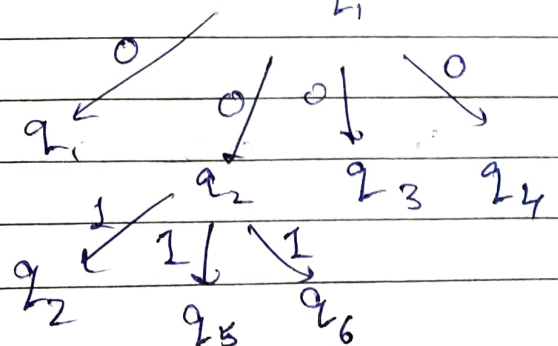 0
0 0 0
q1
q2 q3 q4
1 1 1
q2 q5 q6